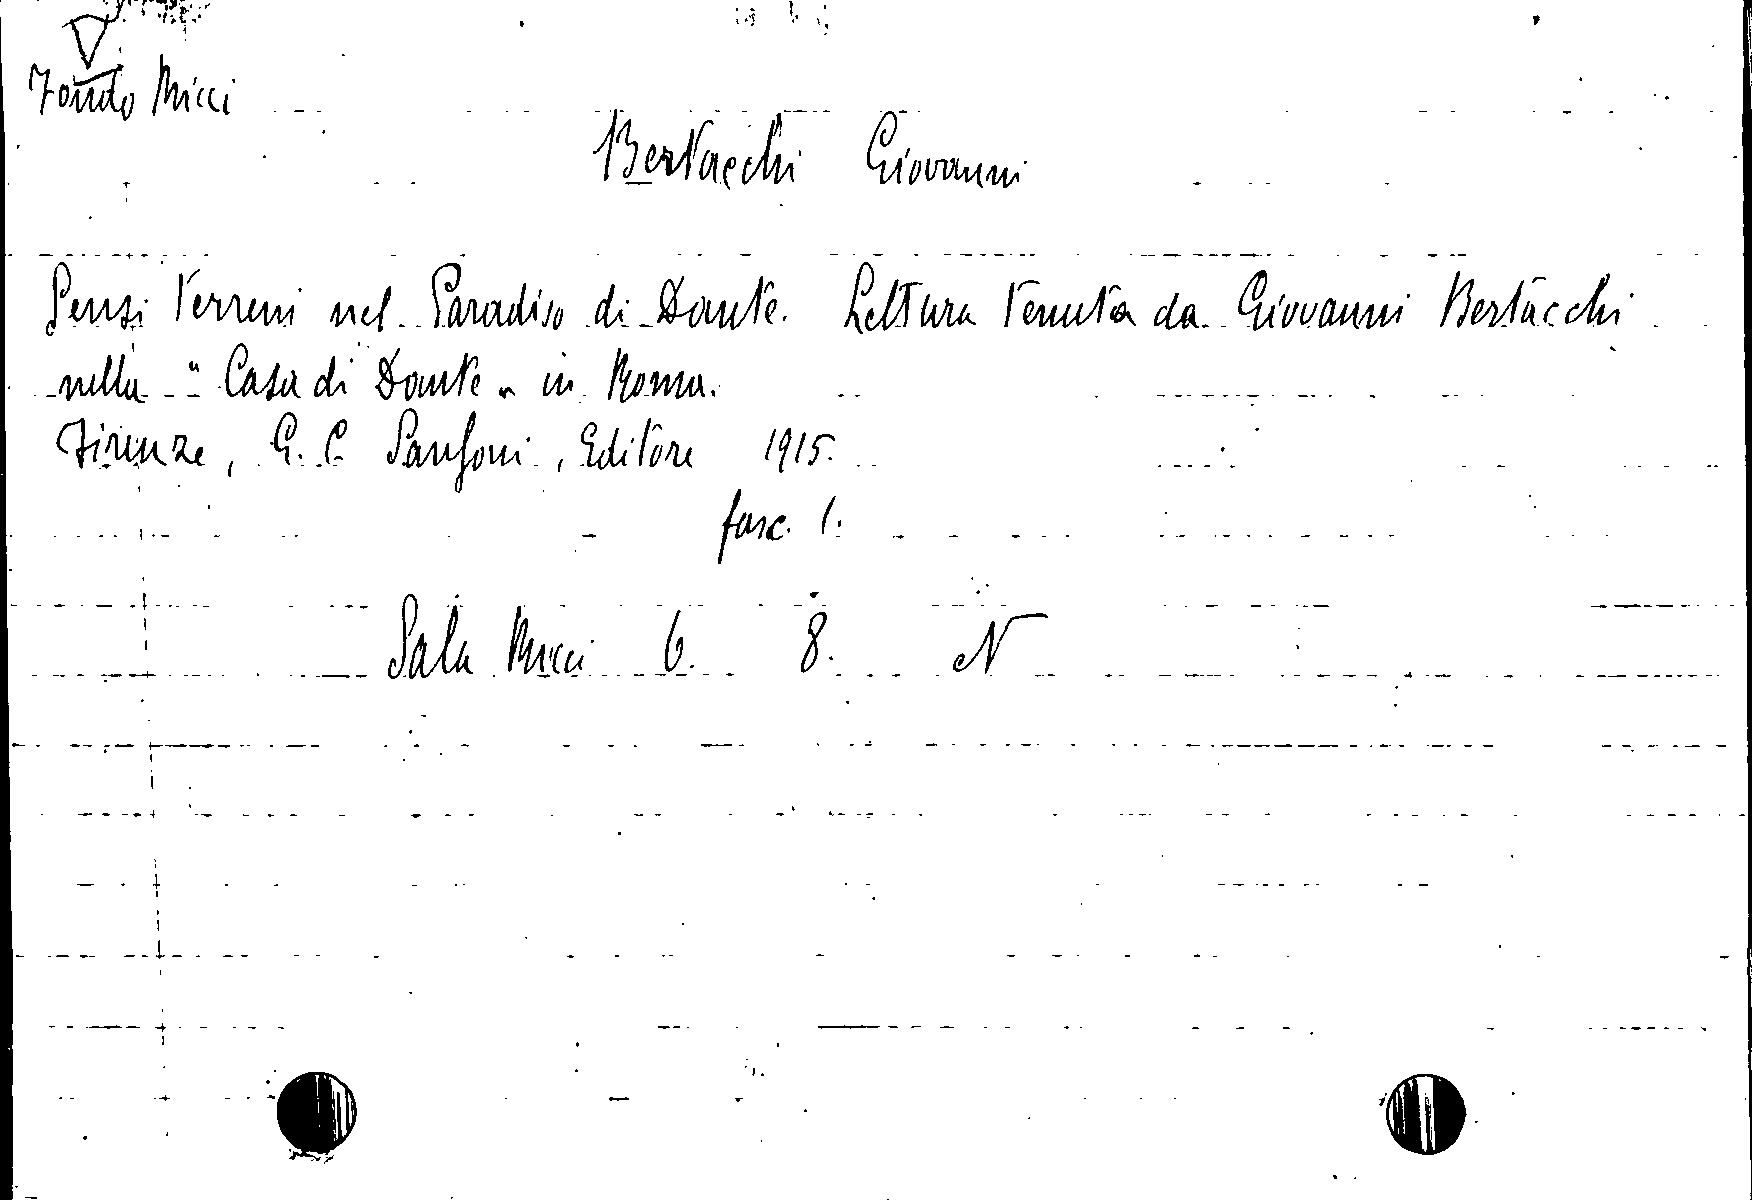 Fondo Ricci
Bertacchi Giovanni
Sensi terreni nel Paradiso di Dante. Lettura tenuta da Giovanni Bertacchi
nella "Casa di Dante" in Roma.
Firenze, G. C. Sansoni, Editore 1915.
fasc. 1.
Sala Ricci 6. 8. N